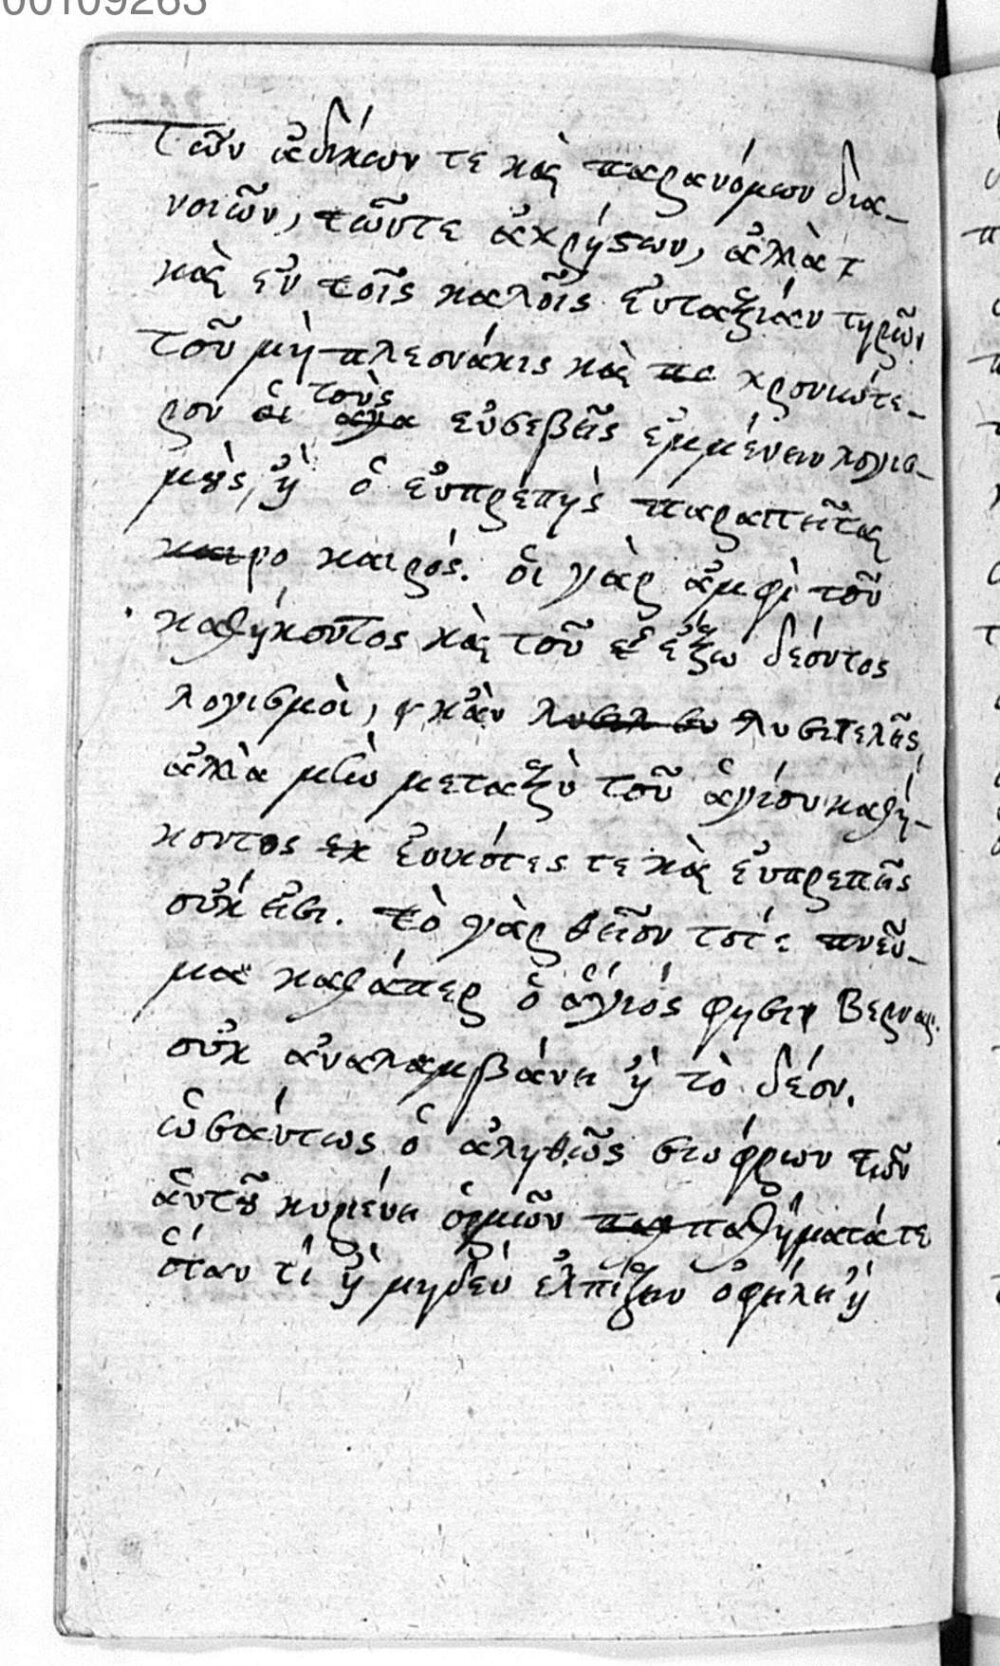 00109263
τῶν ἀδίκων τε καὶ παρανόμων δια-
νοιῶν, τῶντε ἀχρήστων, ἀλλὰ
καὶ ἐν τοῖς καλοῖς εὐταξίαν τηρῶν
τοῦ μὴ πλεονάκις καὶ χρονικώτε-
ρον τοὺς εὐσεβεῖς ἐμμένειν λογισ-
μοὺς, ἢ ὁ εὐπρεπὴς παραιτεῖται
καιρός. ὁι γὰρ ἀμφὶ τοῦ
καθήκοντος καὶ τοῦ ἔξω δέοντος
λογισμοὶ, κἂν λυσιτελεῖς,
ἀλλὰ μὴν μεταξὺ τοῦ ἁγίου καθή-
κοντος ἐοικότες τε καὶ εὐπρεπεῖς
οὔκ εἰσι. τὸ γὰρ θεῖον τότε πνεῦ-
μα καθάπερ ὁ ἅγιός φησιν Βερναρ.
οὐκ ἀναλαμβάνει ἢ τὸ δέον.
ὡσαύτως ὁ ἀληθῶς σώφρων τῶν
ἁυτοῦ κυριεύει ὁρμῶν παθήματάτε
ὅταν τί ἢ μηδὲν ἐλπίζειν ὀφείλει ἢ